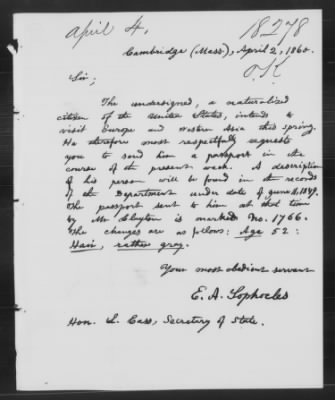 April 4,
18278
O.K
Cambridge (Mass), April 2, 1860.
Sir;
The undersigned, a naturalized
citizen of the United States, intends to
visit Europe and Western Asia this spring.
He therefore most respectfully requests
you to send him a passport in the
course of the present week. A description
of his person will be found in the records
of the Department under date of June 11, 1849.
The passport sent to him at that time
by Mr Clayton is marked No. 1766.
The changes are as follows: Age 52:
Hair, rather gray.
Your most obedient servant
E. A. Sophocles
Hon. L. Cass, Secretary of State.